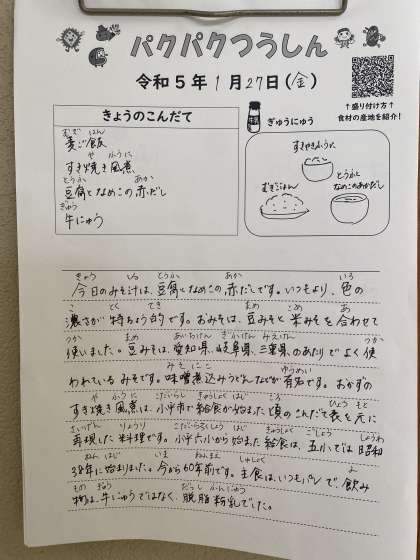 パクパクつうしん
令和5年1月27日(金)
↑盛り付け方↑
食材の産地を紹介!
きょうのこんだて
麦ご飯
すき焼き風煮
豆腐となめこの赤だし
牛にゅう
牛乳
ぎゅうにゅう
すきやきふうに
むぎごはん
とうふと
なめこのあかだし
今日のみそ汁は、豆腐となめこの赤だしです。いつもより、色の
濃さが特ちょう的です。おみそは、豆みそと米みそを合わせて
使いました。豆みそは、愛知県、岐阜県、三重県のあたりでよく使
われているみそです。味噌煮込みうどんなどが有名です。おかずの
すき焼き風煮は、小平市で給食が始まった頃のこんだて表を元に
再現した料理です。小平六小から始まった給食は、五小では昭和
38年に始まりました。今から60年前です。主食は、いつもパンで、飲み
物は、牛にゅうではなく、脱脂粉乳でした。